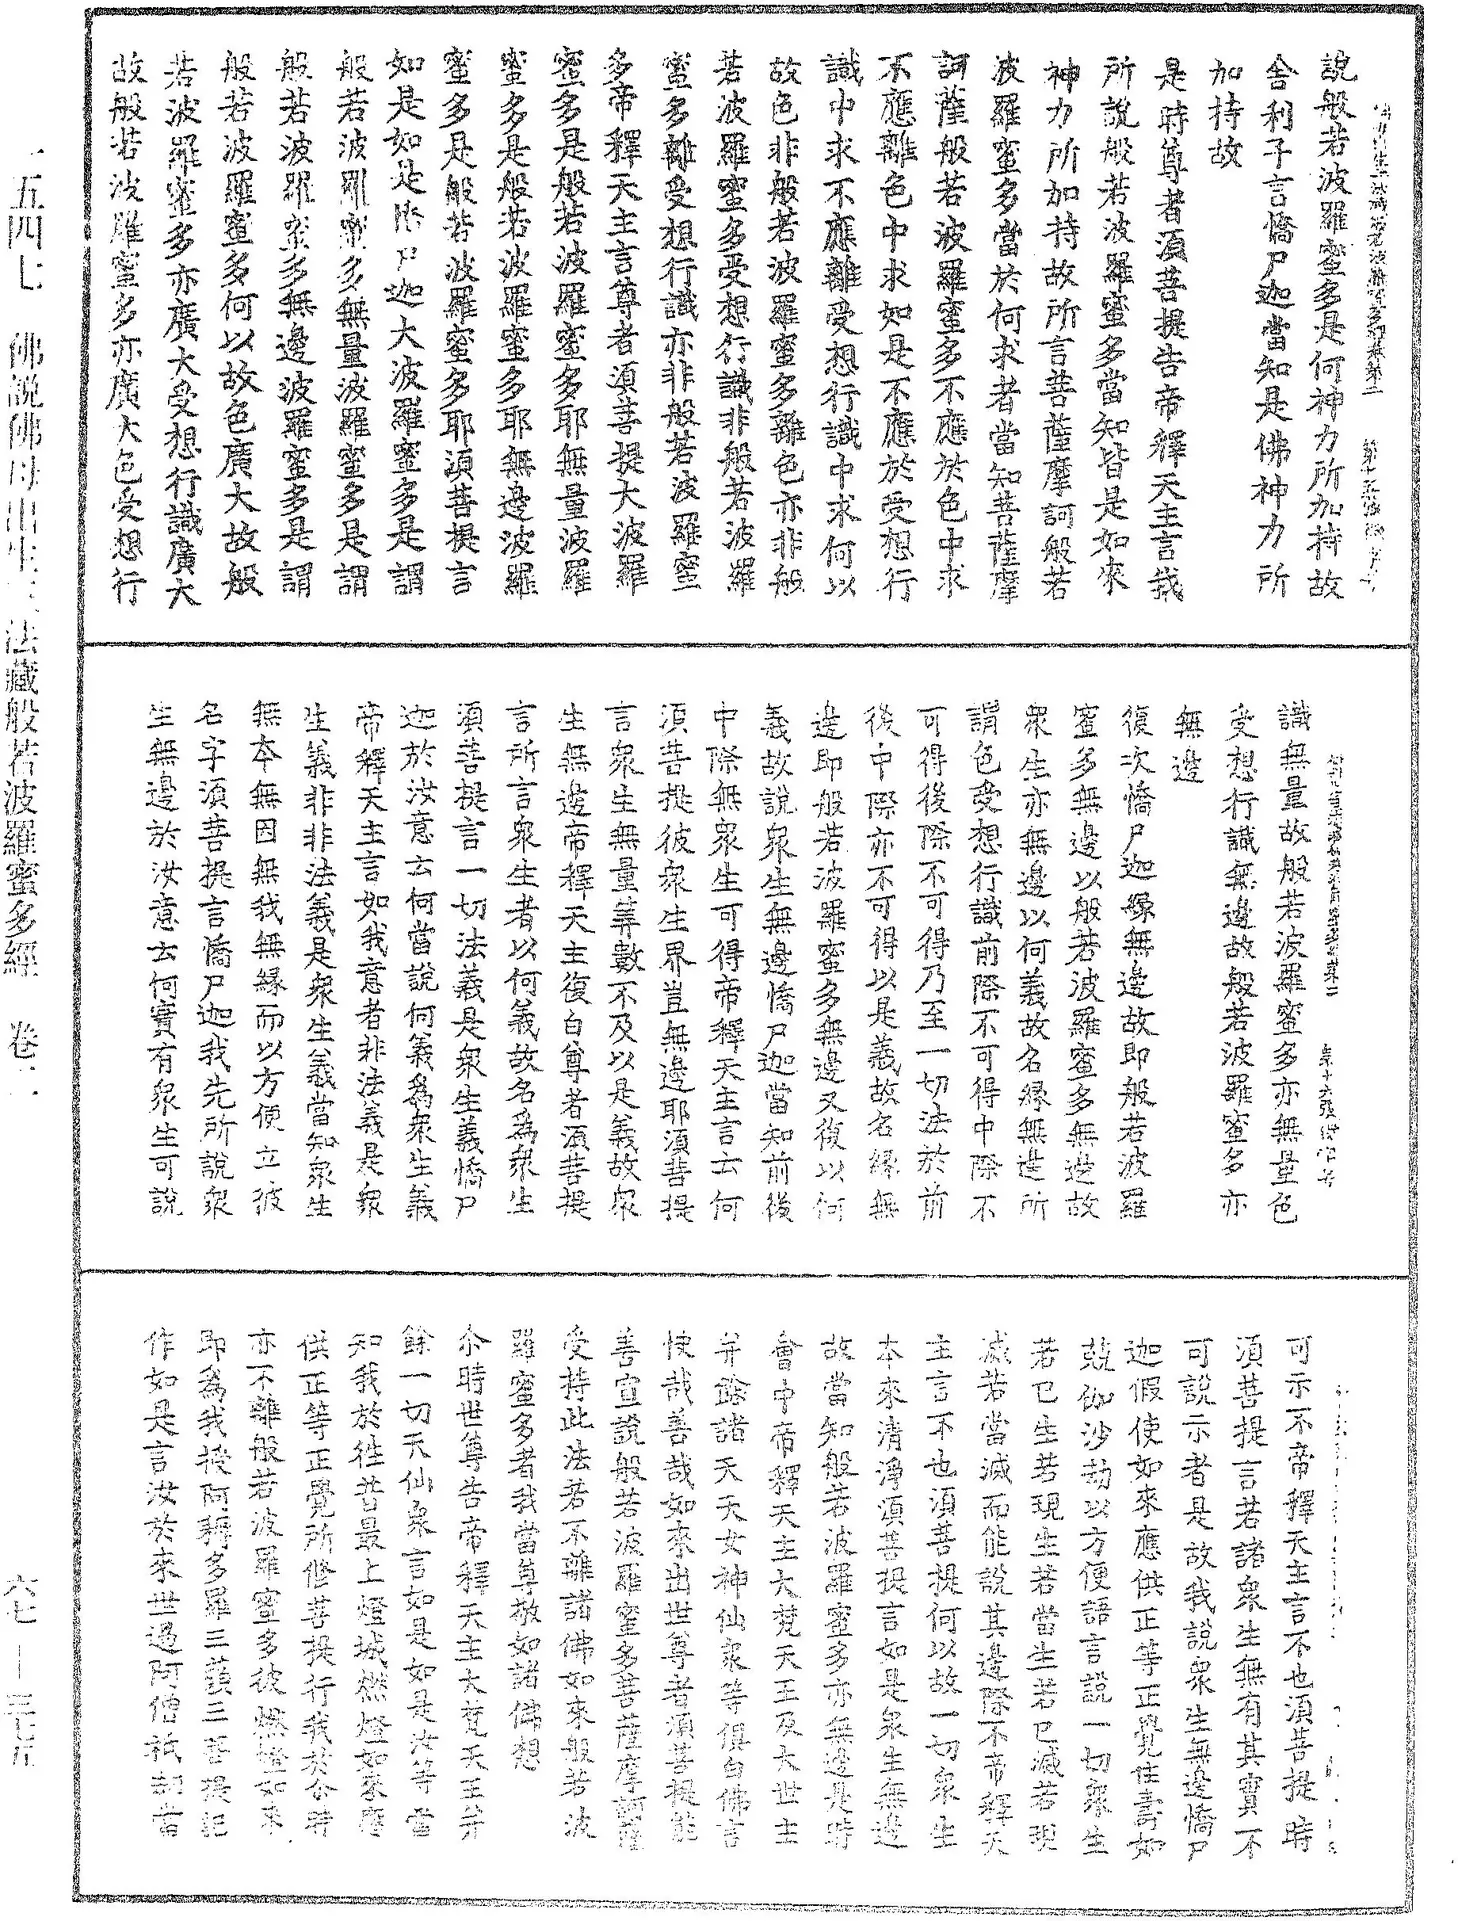 說般若波羅蜜多是何神力所加持故
舍利子言憍尸迦當知是佛神力所
加持故
是時尊者須菩提告帝釋天主言我
所說般若波羅蜜多當知皆是如來
神力所加持故所言菩薩摩訶般若
波羅蜜多當於何求者當知菩薩摩
訶薩般若波羅蜜多不應於色中求
不應離色中求如是不應於受想行
識中求不應離受想行識中求何以
故色非般若波羅蜜多離色亦非般
若波羅蜜多受想行識非般若波羅
蜜多離受想行識亦非般若波羅蜜
多帝釋天主言尊者須菩提大波羅
蜜多是般若波羅蜜多耶無量波羅
蜜多是般若波羅蜜多耶無邊波羅
蜜多是般若波羅蜜多耶須菩提言
如是如是憍尸迦大波羅蜜多是謂
般若波羅蜜多無量波羅蜜多是謂
般若波羅蜜多無邊波羅蜜多是謂
般若波羅蜜多何以故色廣大故般
若波羅蜜多亦廣大受想行識廣大
故般若波羅蜜多亦廣大色受想行
識無量故般若波羅蜜多亦無量色
受想行識無邊故般若波羅蜜多亦
無邊
復次憍尸迦緣無邊故即般若波羅
蜜多無邊以般若波羅蜜多無邊故
眾生亦無邊以何義故名緣無邊所
謂色受想行識前際不可得中際不
可得後際不可得乃至一切法於前
後中際亦不可得以是義故名緣無
邊即般若波羅蜜多無邊又復以何
義故說眾生無邊憍尸迦當知前後
中際無眾生可得帝釋天主言云何
須菩提彼眾生界豈無邊耶須菩提
言眾生無量筭數不及以是義故眾
生無邊帝釋天主復白尊者須菩提
言所言眾生者以何義故名為眾生
須菩提言一切法義是眾生義憍尸
迦於汝意云何當說何義為眾生義
帝釋天主言如我意者非法義是眾
生義非非法義是眾生義當知眾生
無本無因無我無緣而以方便立彼
名字須菩提言憍尸迦我先所說眾
生無邊於汝意云何實有眾生可說
可示不帝釋天主言不也須菩提時
須菩提言若諸眾生無有其實不
可說示者是故我說眾生無邊憍尸
迦假使如來應供正等正覺住壽如
殑伽沙劫以方便語言說一切眾生
若已生若現生若當生若已滅若現
滅若當滅而能說其邊際不帝釋天
主言不也須菩提何以故一切眾生
本來清淨須菩提言如是眾生無邊
故當知般若波羅蜜多亦無邊是時
會中帝釋天主大梵天王及大世主
并餘諸天天女神仙眾等俱白佛言
快哉善哉如來出世尊者須菩提能
善宣說般若波羅蜜多菩薩摩訶薩
受持此法若不離諸佛如來般若波
羅蜜多者我當尊敬如諸佛想
尒時世尊告帝釋天主大梵天王并
餘一切天仙眾言如是如是汝等當
知我於往昔最上燈城然燈如來應
供正等正覺所修菩提行我於尒時
亦不離般若波羅蜜多彼燃燈如來
即為我授阿耨多羅三藐三菩提記
作如是言汝於來世過阿僧祇劫當
一五四七 佛說佛母出生三法藏般若波羅蜜多經 卷二 六七—三七五